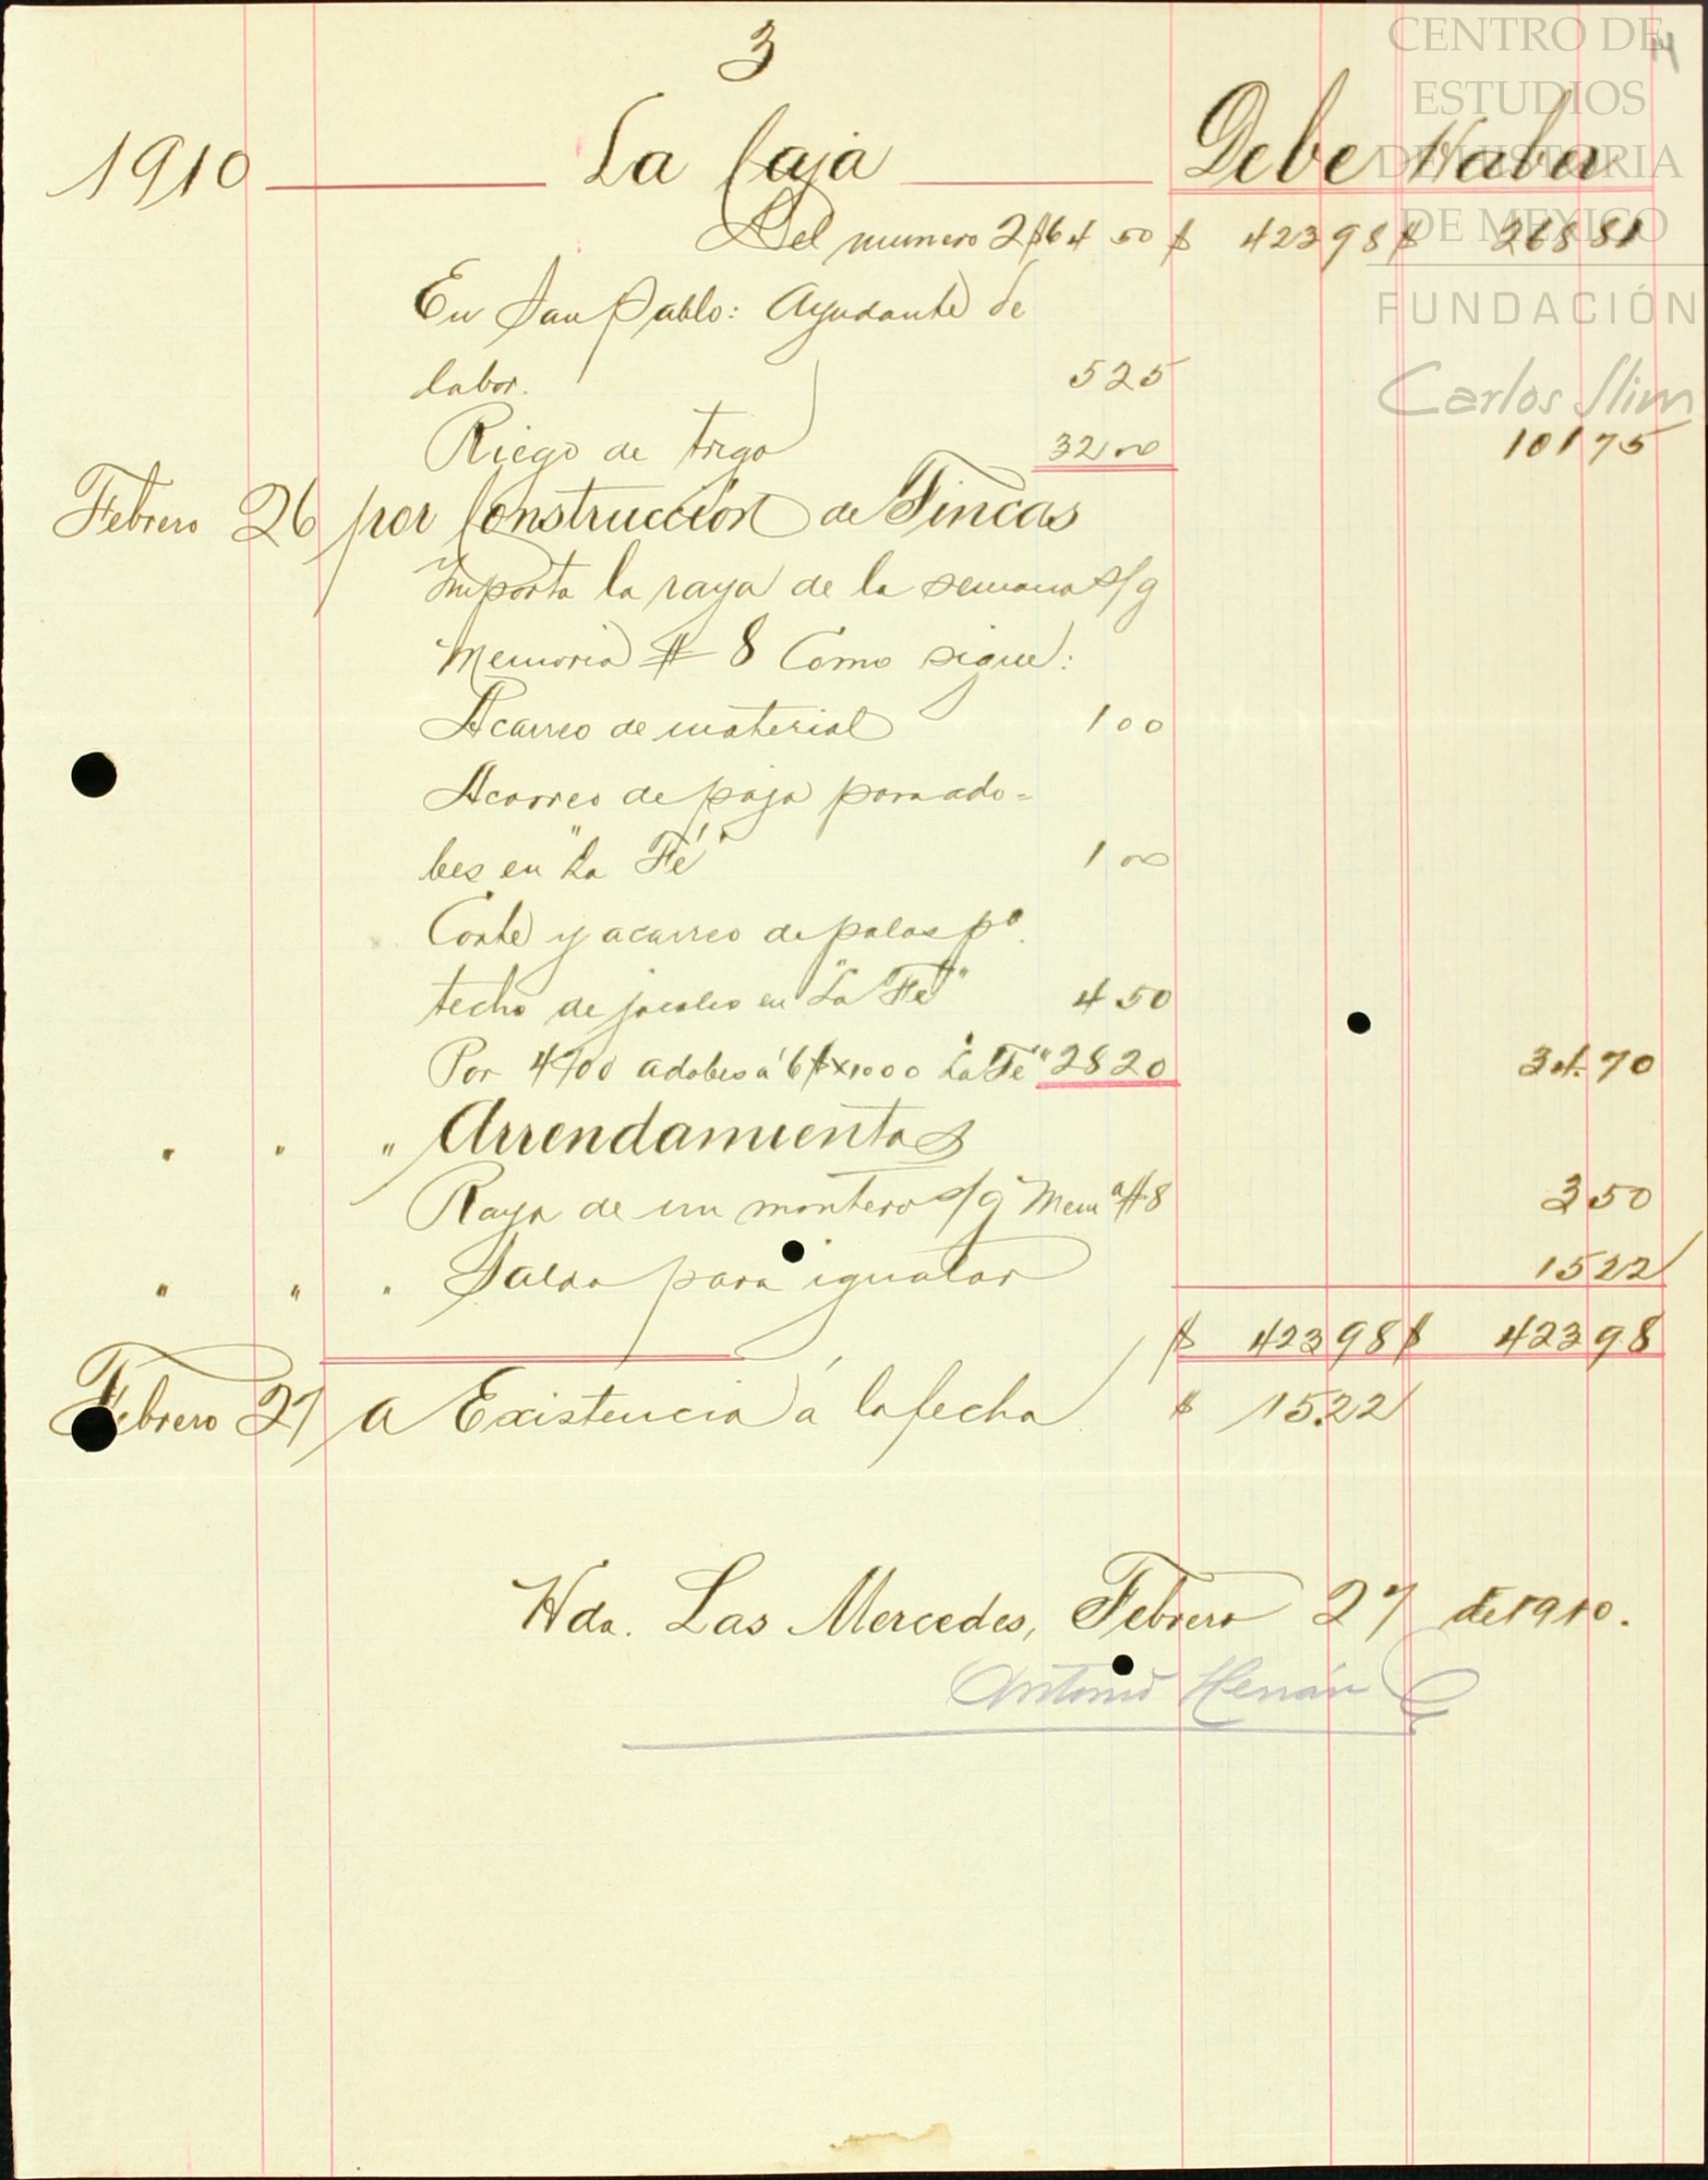 3
14
CENTRO DE
ESTUDIOS
DE HISTORIA
DE MEXICO
FUNDACIÓN
Carlos Slim
1910 La Caja Debe Haber
Del numero 2 $64 50 $ 423 98 $ 268 81
En San Pablo: Ayudante de
labor. 5 25
Riego de trigo 32 00 101 75
Febrero 26 por Construcción de Fincas
Importa la raya de la semana s/g
Memoria # 8 Como sigue:
Acarreo de material 1 00
Acarreo de paja para ado=
bes en "La Fé" 1 00
Corte y acarreo de palos pa.
techo de jacales en "La Fé" 4 50
Por 4700 adobes á 6$ x 1000 La Fé" 28 20 34.70
" " " Arrendamientos
Raya de un montero s/g Mema #8 3 50
" " " Saldo para igualar 15 22
$ 423 98 $ 423 98
Febrero 27 a Existencia á la fecha $ 15.22
Hda. Las Mercedes, Febrero 27 de 1910.
Antonio